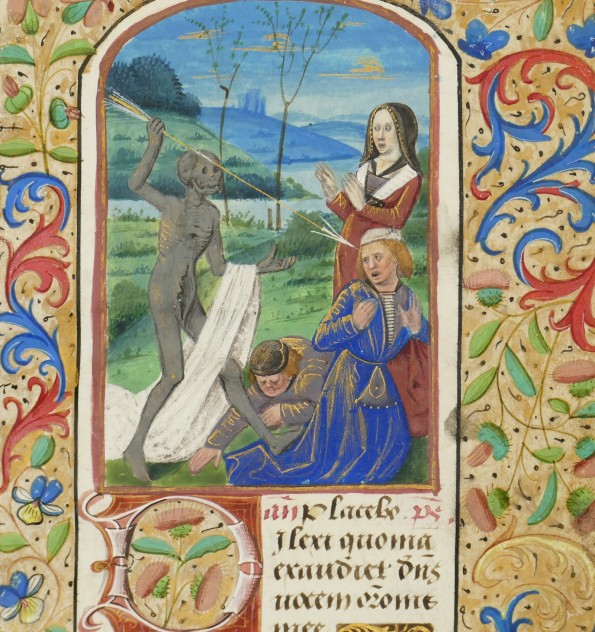 an̄ Placebo. ps̄.
DIlexi quoniā
exaudiet dn̄s
uocem orōnis
mee